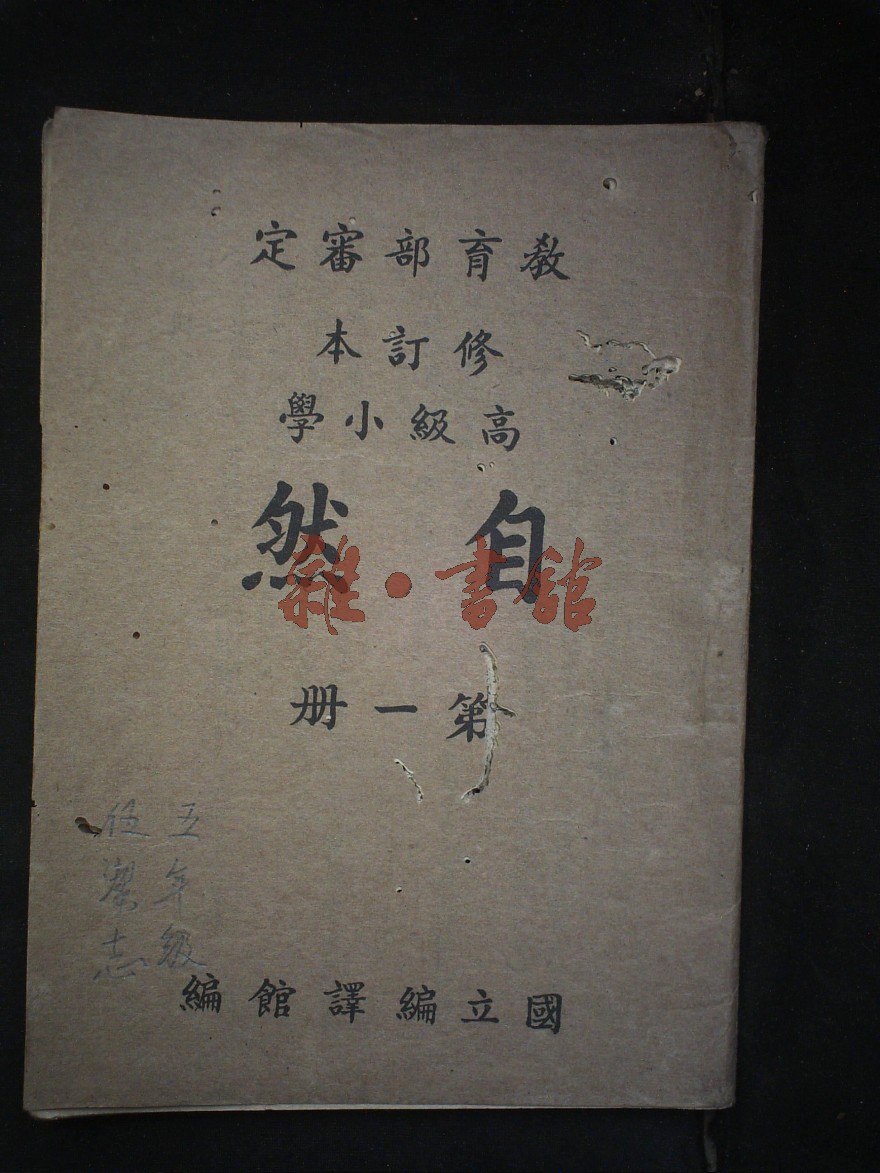 教育部審定
修訂本
高級小學
自然
雜·書館
第一册
五年級
志
國立編譯館編